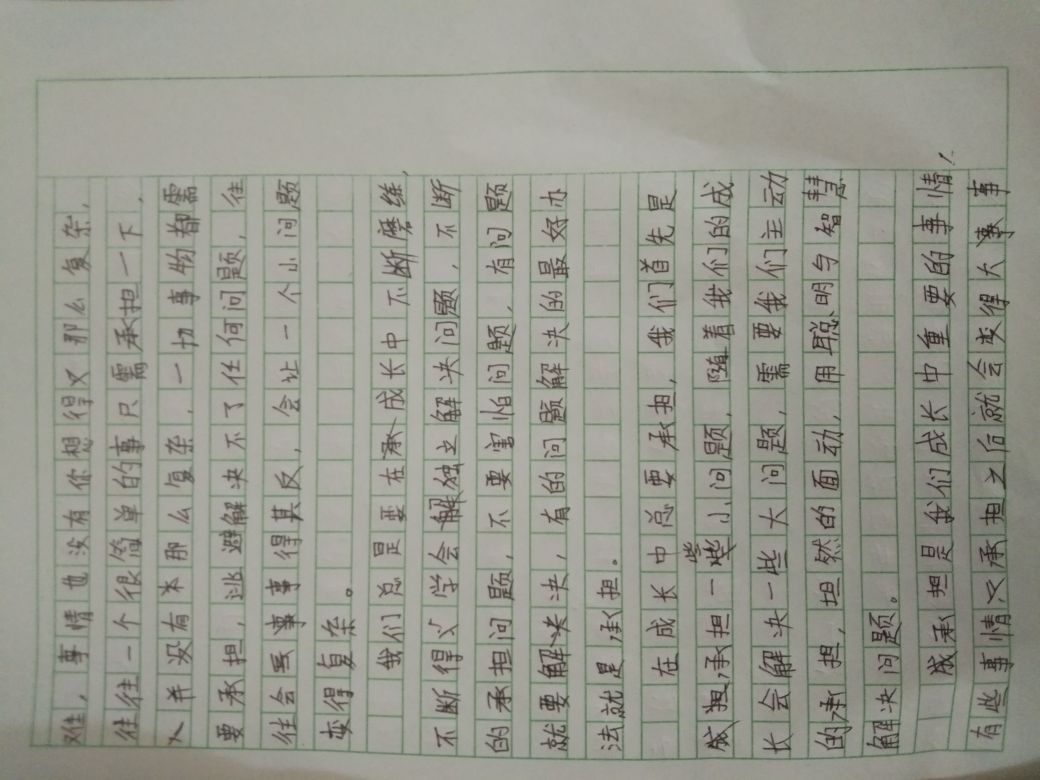 难，事情也没有你想得又那么复杂，
往往一个很简单的事只需承担一下，
并没有本那么复杂，一切事物都需
要承担，逃避解决不了任何问题，往
往会事事得其反，会让一个小问题
变得复杂。
我们总是要在承成长中不断磨练，
不断得学会解独立解决问题，不断
的承担问题，不要害怕问题，有问题
就要解决决，有的问题解决的最好办
法就是承担。
在成长中总要承担，我们首先是
承担一些些小问题，随着我们的成
长会解决一些大问题，需要我们主动
的承担，坦然的面动，用聪明与智慧
解决问题。
承担是我们成长中重要的事情！
有些事情又承担之后就会变得大事事